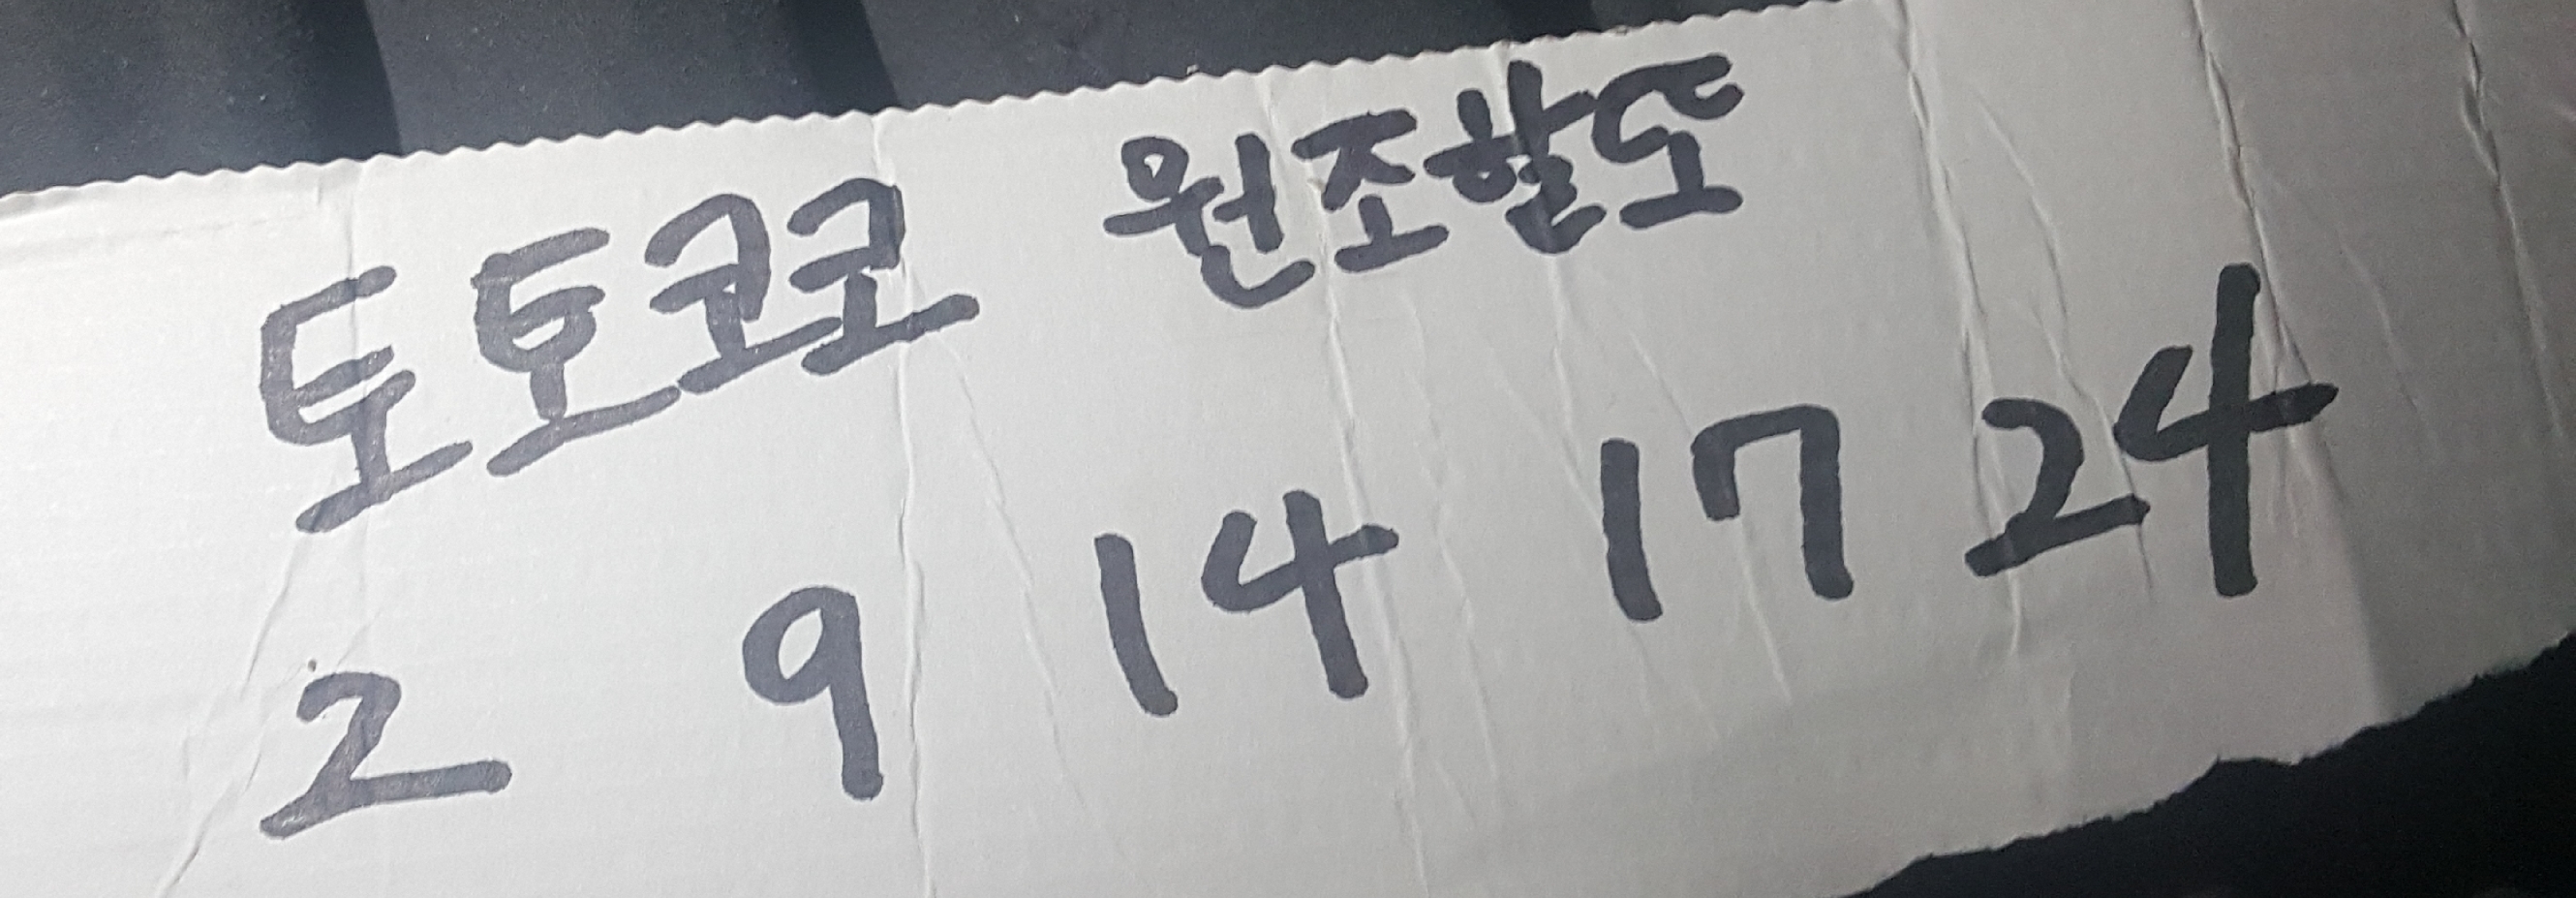 토토코코 원조할또
2 9 14 17 24